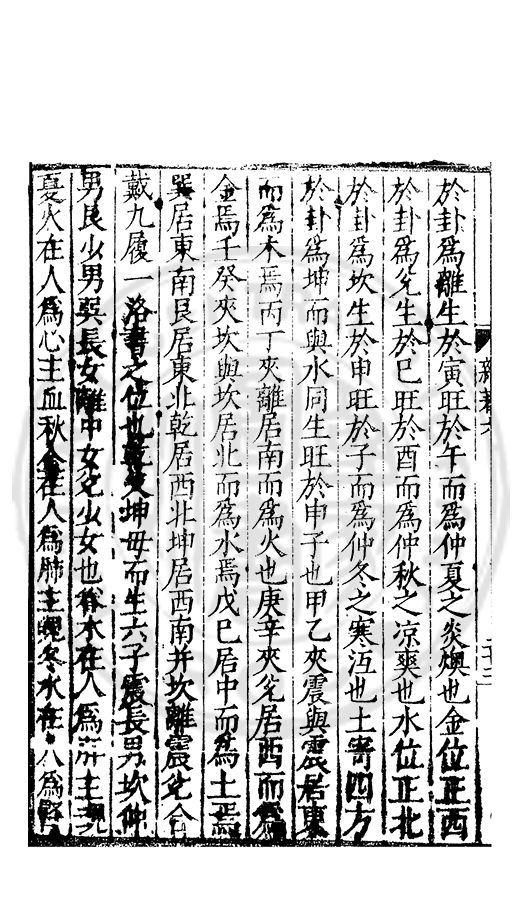 於卦爲離生於寅旺於午而爲仲夏之炎燠也金位正西
於卦爲兊生於巳旺於酉而爲仲秋之凉爽也水位正北
於卦爲坎生於申旺於子而爲仲冬之寒冱也土寄四方
於卦爲坤而與水同生旺於申子也甲乙夾震與震居東
而爲木焉丙丁夾離居南而爲火也庚辛夾兊居西而爲
金焉壬癸夾坎與坎居北而爲水焉戊巳居中而爲土焉
巽居東南艮居東北乾居西北坤居西南并坎離震兊合
戴九履一洛書之位也乾父坤母而生六子震長男坎仲
男艮少男巽長女離中女兊少女也春木在人爲肝主魂
夏火在人爲心主血秋金在人爲肺主魄冬水在人爲腎